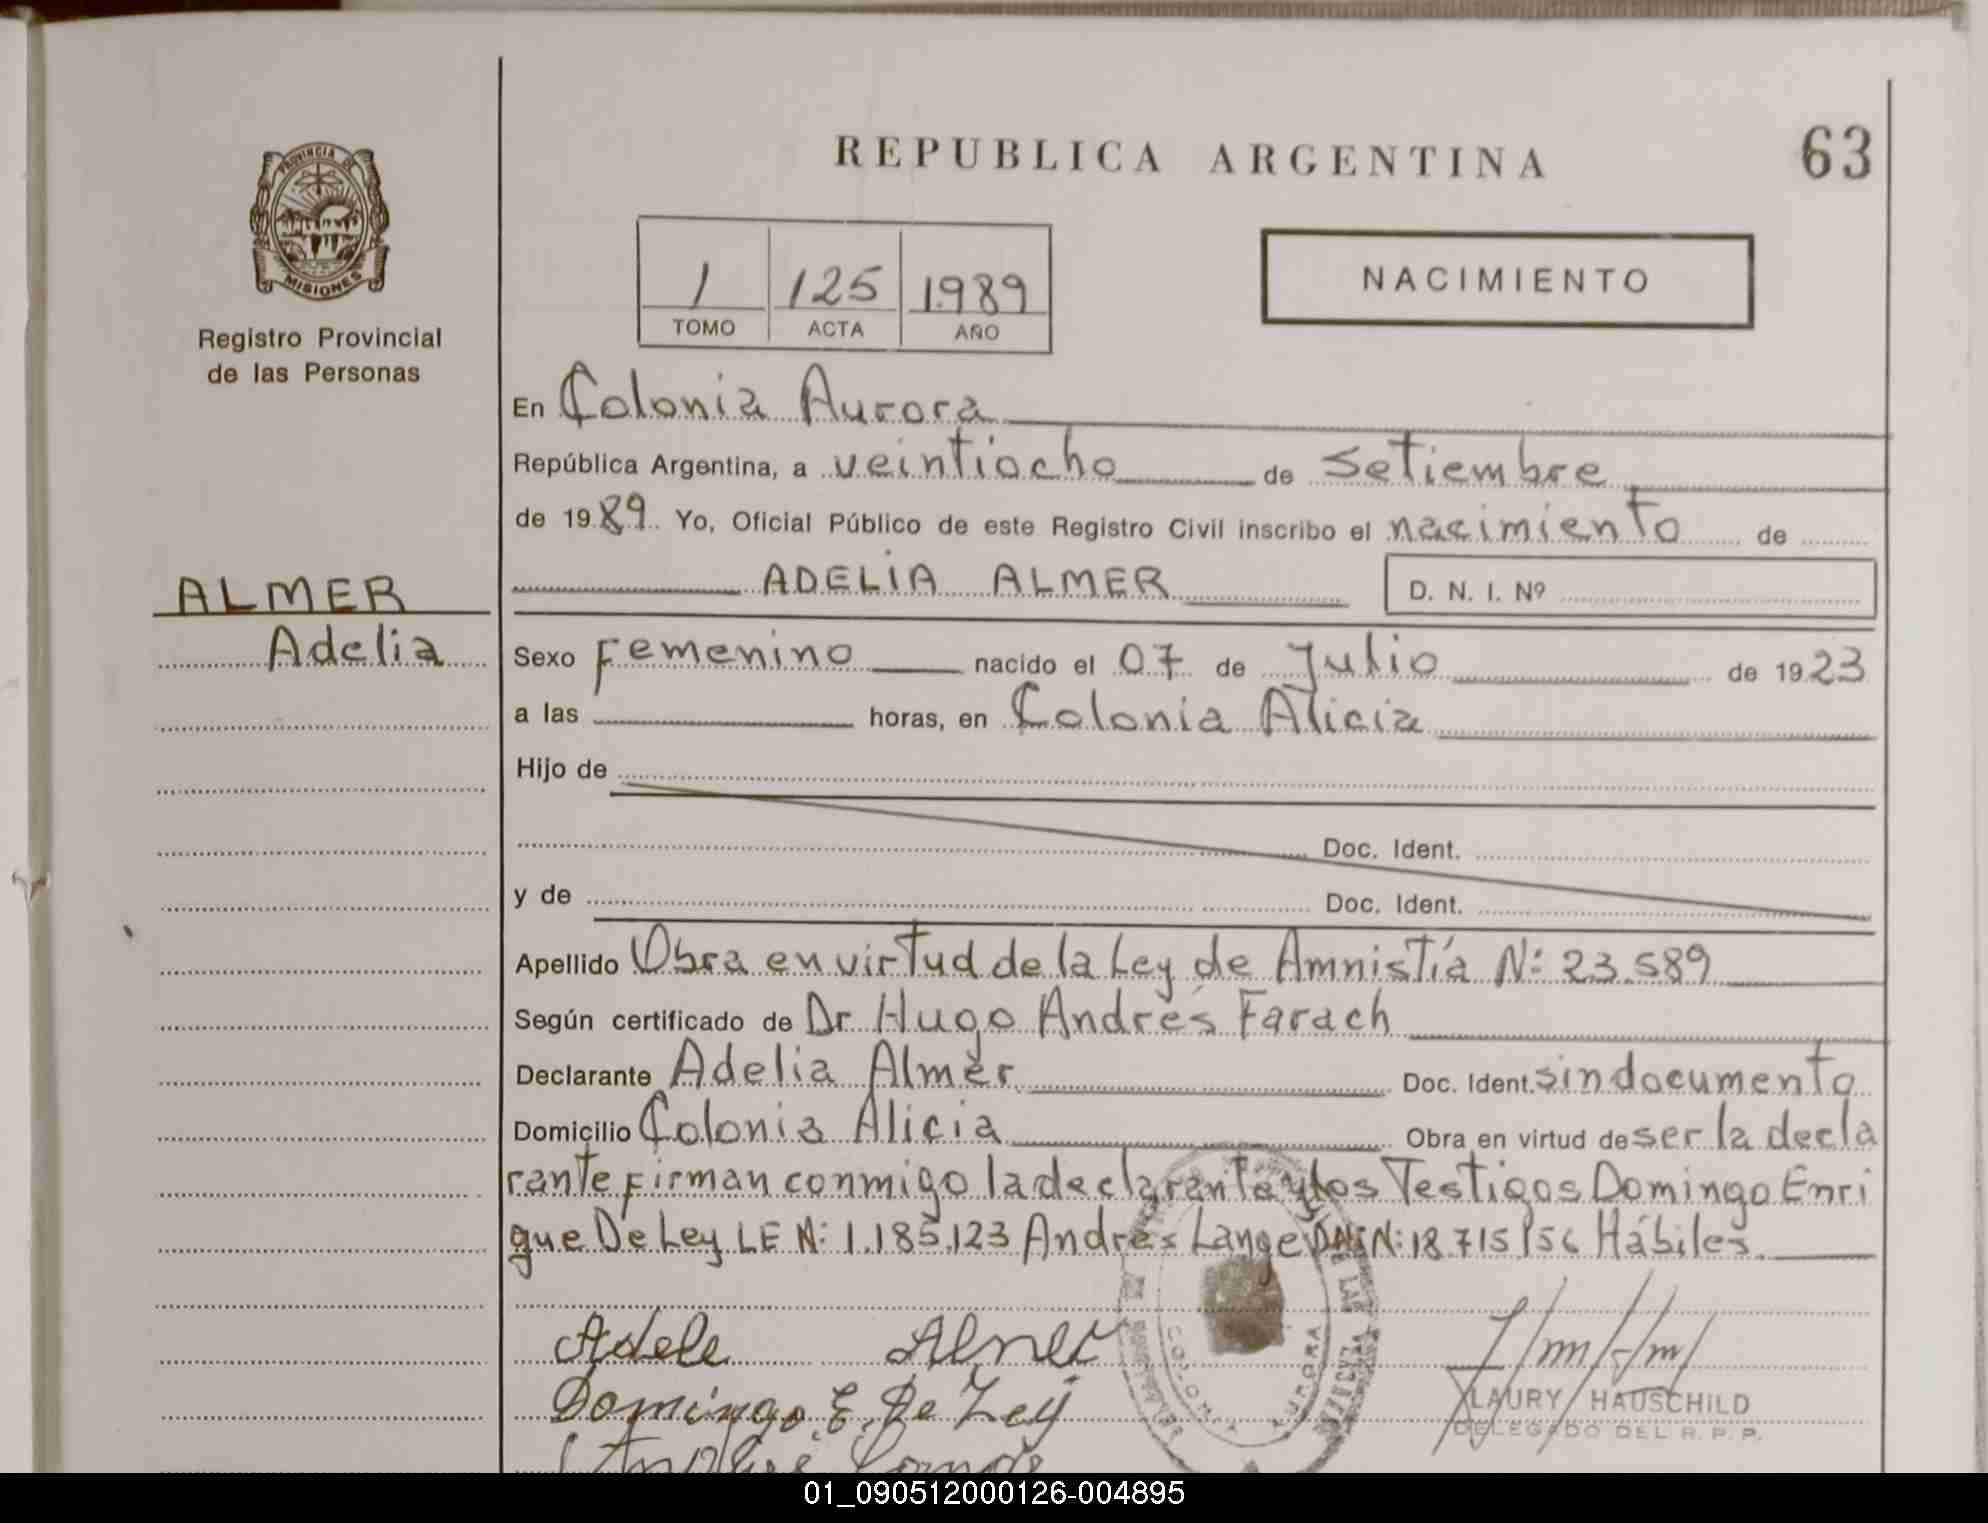 REPUBLICA ARGENTINA
63
PROVINCIA DE
MISIONES
Registro Provincial
de las Personas
1 125 1.989
TOMO ACTA AÑO
NACIMIENTO
En Colonia Aurora
República Argentina, a veintiocho de setiembre
de 1989. Yo, Oficial Público de este Registro Civil inscribo el nacimiento de
ADELIA ALMER D. N. I. Nº
ALMER
Adelia
Sexo Femenino nacido el 07 de Julio de 1923
a las horas, en Colonia Alicia
Hijo de
Doc. Ident.
y de Doc. Ident.
Apellido Obra en virtud de la Ley de Amnistía N: 23.589
Según certificado de Dr Hugo Andrés Farach
Declarante Adelia Almer Doc. Ident. sin documento
Domicilio Colonia Alicia Obra en virtud de ser la decla
rante firman conmigo la declarante y los Testigos Domingo Enri
que De Ley LE N: 1.185.123 Andrés Lange DNI N: 18 715 156 Hábiles.
Adele Almer
Domingo E. De Ley
COLONIA AURORA
LAURY HAUSCHILD
DELEGADO DEL R. P. P.
01_090512000126-004895